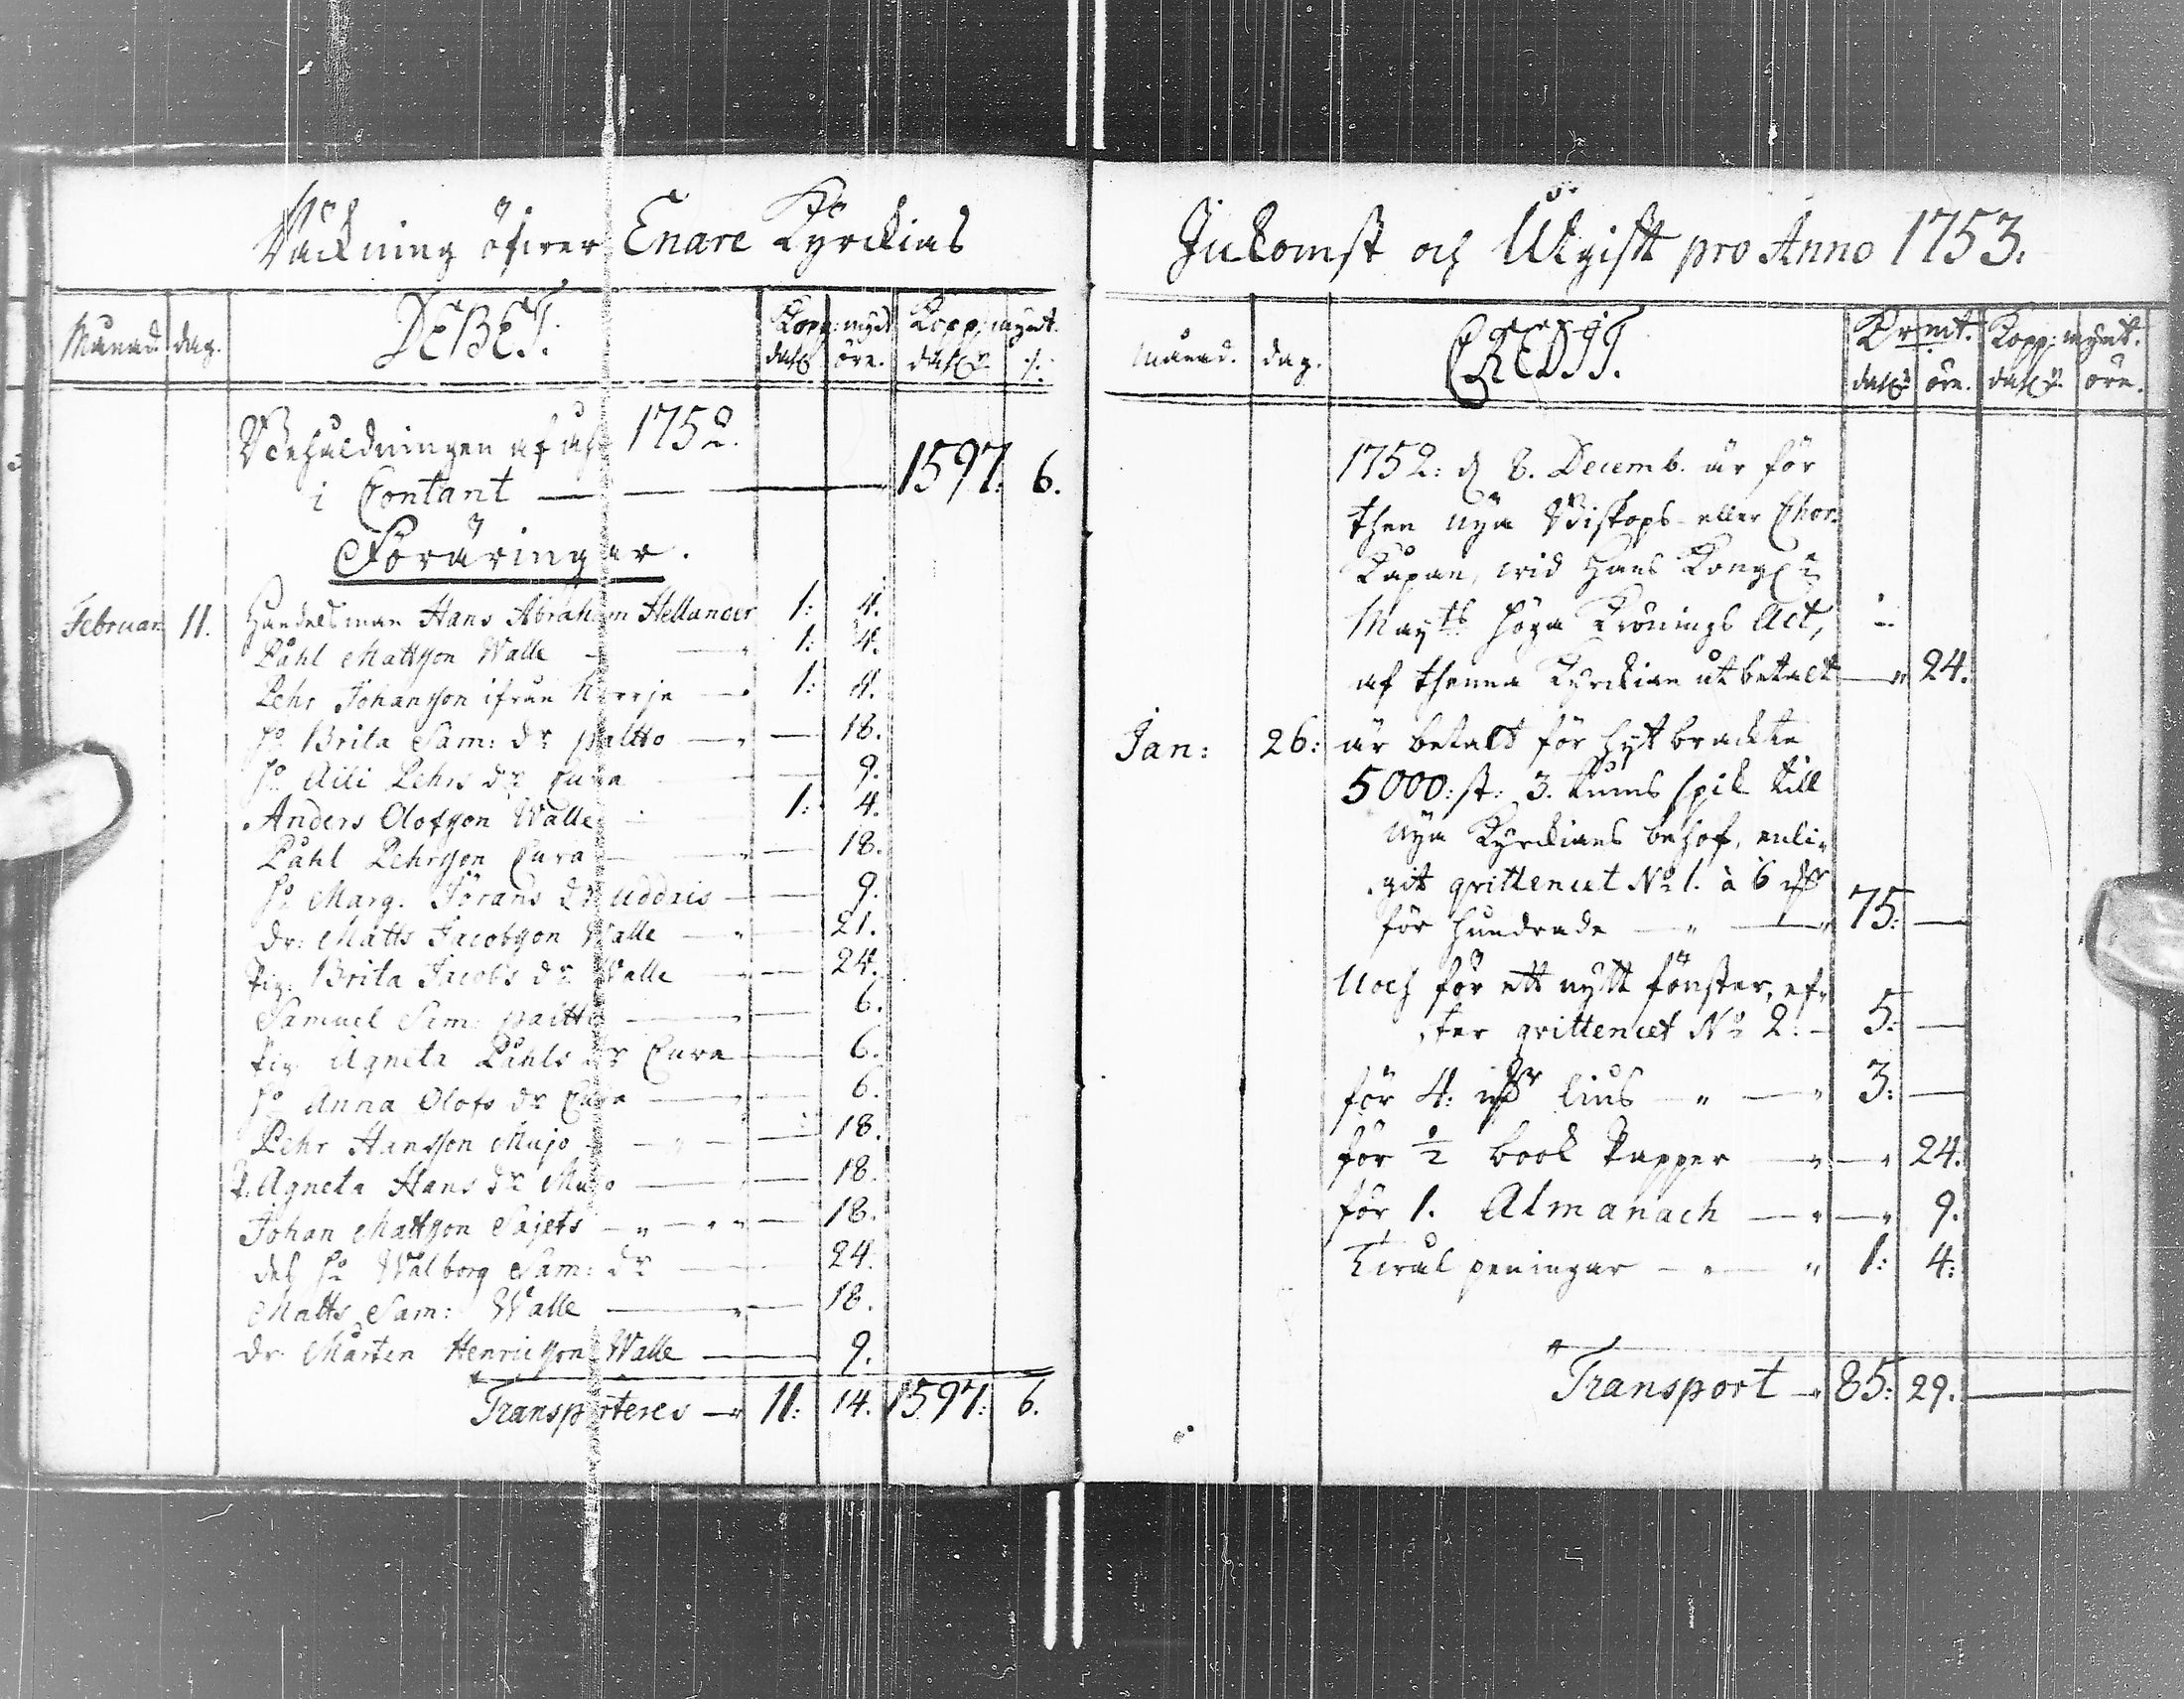 Räckning öfwer Enare Kyrckias
Månad. dag. DEBET. Kopp:mynt Kopp:mynt.
dalr öre. dalr ./.
Behåldningen af åhr 1752.
i Contant — — — 1597: 6.
Föräringar.
Februar 11. Handelsman Hans Abraham Hellander 1: 4.
Påhl Mattsson Walle — — 1: 4.
Pehr Johansson ifrån — 1: 4.
Ho Brita Sam: dr — — 18.
Ho Aili Pehrs dr Cura — — 9.
Anders Olofsson Walle — 1: 4.
Påhl Pehrsson Cura — — 18.
Ho Marg. Jörans dr — — 9.
dr: Matts Jacobsson Walle — — 21.
Pig: Brita Jacobs dr Walle — — 24.
Samuel Sam: — — 6.
Pig. Agneta Påhls dr Cura — — 6.
Ho Anna Olofs dr Cura — — 6.
Pehr Hansson Mujo — — 18.
P. Agneta Hans dr Mujo — — 18.
Johan Mattsson Sajets — — 18.
des Ho Walborg Sam: dr — — 24.
Matts Sam: Walle — — 18.
dr Mårten Henricsson Walle — — 9.
Transporteres — 11: 14. 1597: 6.
Inkomst och Utgift pro Anno 1753.
Månad. dag. CREDIT. Kr mt. Kopp: mynt.
dalr öre. dalr öre.
1752: d 8. Decemb. är för
then nya Biskops- eller Chor-
Kapan, wid Hans Kongl:
Mayts höga Krönings Act,
af thenna Kyrckian utbetalt — 24.
Jan: 26: är betalt för hytbrackta
5000: st: 3. tums spik till
nya Kyrckians behof, enli-
git qvittencet No 1. à 6
för hundrade — — 75: —
Noch för ett nytt fönster, ef-
ter qvittencet No 2: — 5: —
för 4: lius — — 3: —
för ½ book Papper — — 24.
för 1. Almanach — — 9.
Tiräl peningar — — 1: 4:
Transport — 85: 29. —